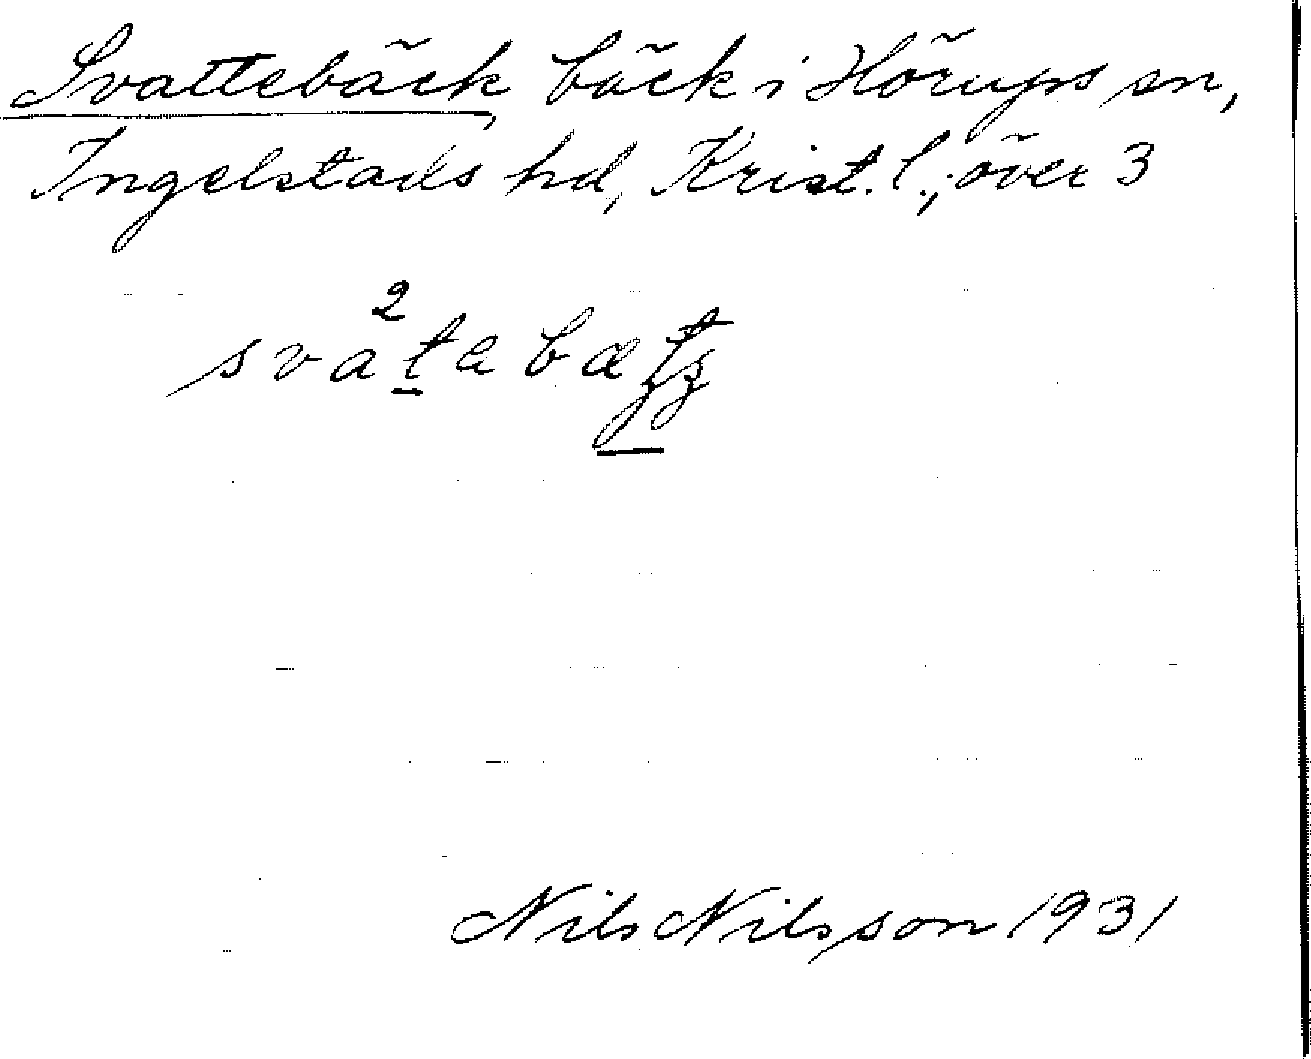 Svattebäck, bäck i Hörups sn,
Ingelstads hd, Krist. l.; över 3
Nils Nilsson 1931